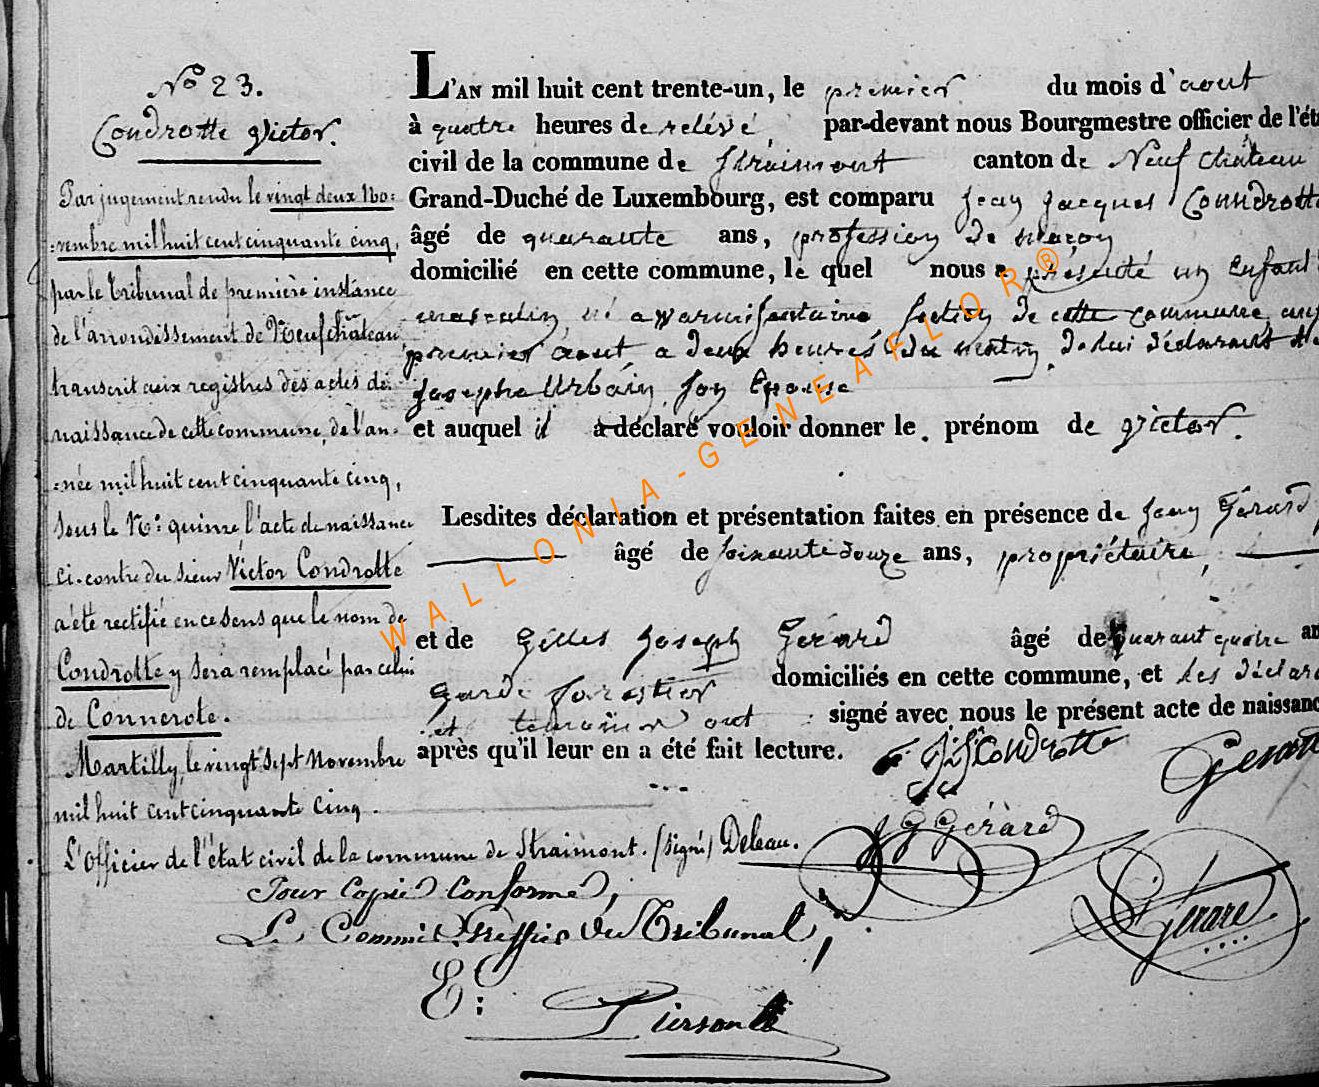 No 23.
Condrotte Victor.
Par jugement rendu le vingt deux No=
=vembre mil huit cent cinquante cinq,
par le Tribunal de première instance
de l'arrondissement de Neufchâteau
transcrit aux registres des actes de
naissance de cette commune, de l'an-
=née mil huit cent cinquante cinq,
sous le No: quinze, l'acte de naissance
ci-contre du sieur Victor Condrotte
a été rectifié en ce sens que le nom de
Condrotte y sera remplacé par celui
de Connerote.
Martilly, le vingt sept Novembre
mil huit cent cinquante cinq.
L'Officier de l'état civil de la commune de Straimont. (signé) Deleau.
Pour Copie Conforme,
Le Commis Greffier du Tribunal,
E: Pierson
L'AN mil huit cent trente-un, le premier du mois d'aout
à quatre heures de relévé par-devant nous Bourgmestre officier de l'ét
civil de la commune de Straimont canton de Neufchâteau
Grand-Duché de Luxembourg, est comparu Jean Jacques Conndrotte
âgé de quarante ans, profession de maçon
domicilié en cette commune, le quel nous a présenté un enfant
masculin, né a Warmifontaine section de cette commune
premier aout a deux heures du matin, de lui déclarant
Josephe Urbain, son Epouse
et auquel il a déclaré vouloir donner le prénom de Victor.
Lesdites déclaration et présentation faites en présence de Jean Gérard
âgé de soixante douze ans, propriétaire,
et de Gilles Joseph Gérard âgé de quarant quatre an
Garde forestier domiciliés en cette commune, et les déclar
et temoins ont signé avec nous le présent acte de naissanc
après qu'il leur en a été fait lecture.
J J Condrotte
J G Gérard
Gérard
WALLONIA-GENEAFLOR®